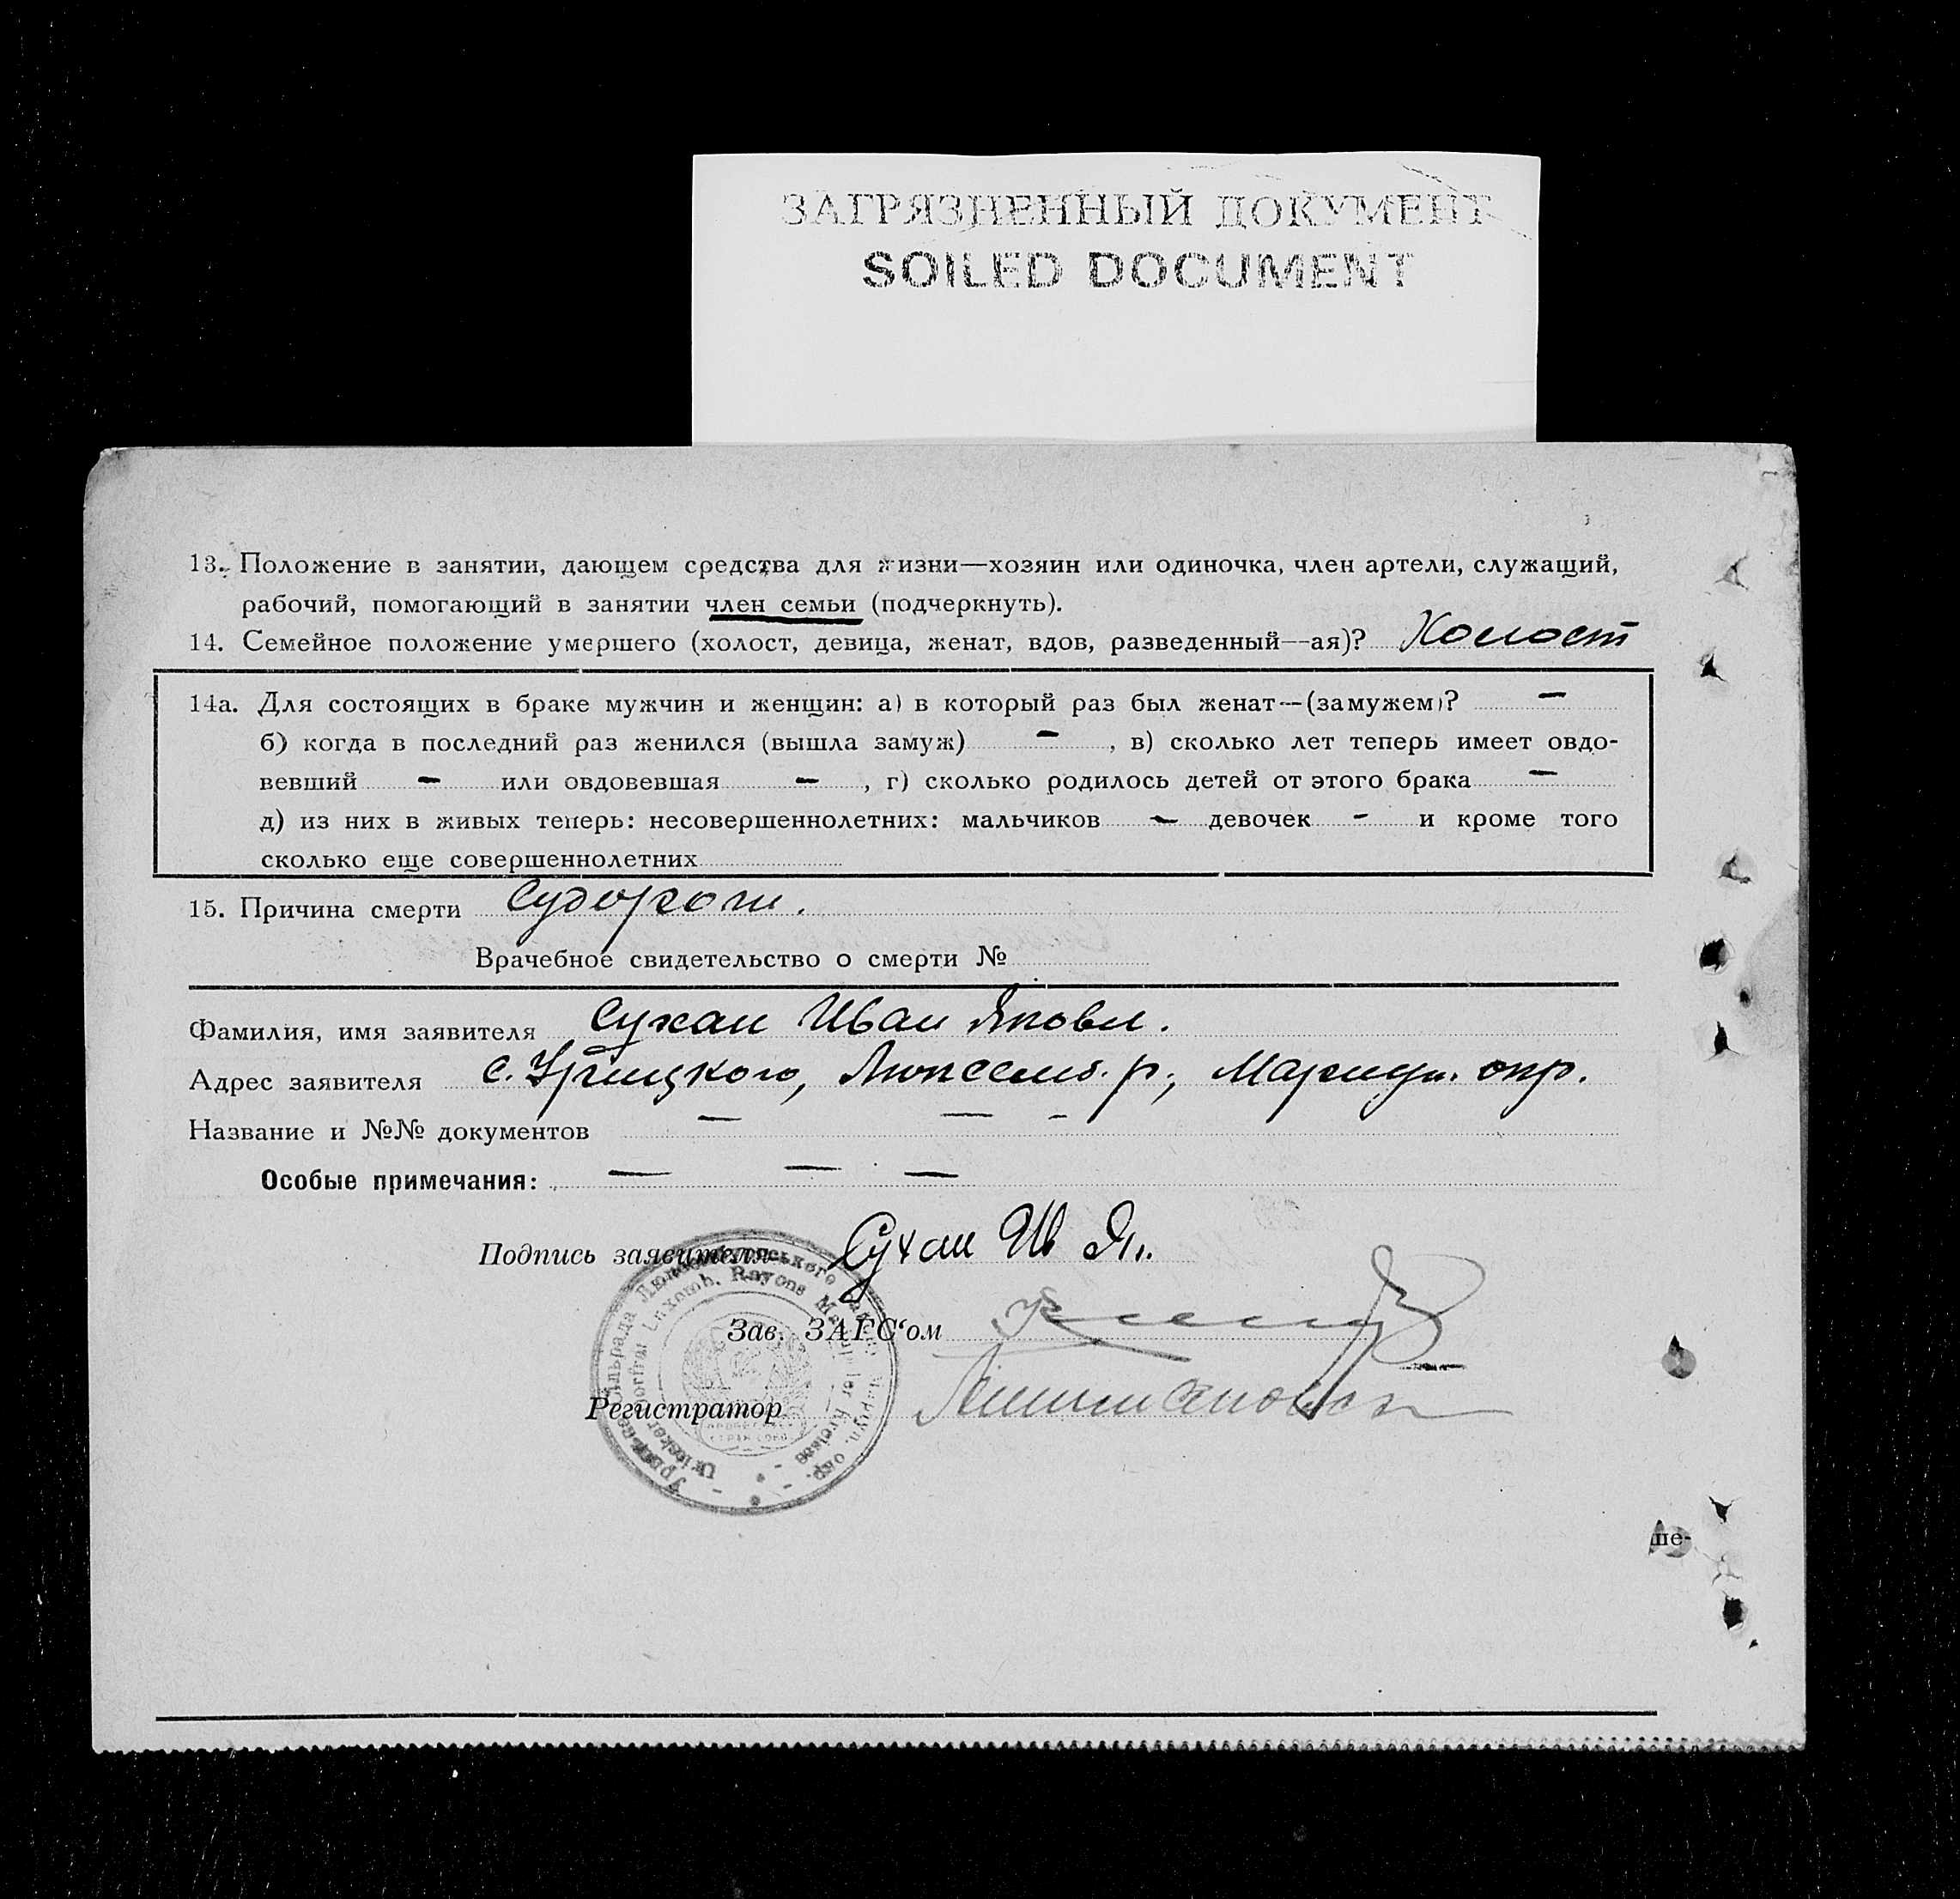 ЗАГРЯЗНЕННЫЙ ДОКУМЕНТ
SOILED DOCUMENT
13. Положение в занятии, дающем средства для жизни—хозяин или одиночка, член артели, служащий,
рабочий, помогающий в занятии член семьи (подчеркнуть).
14. Семейное положение умершего (холост, девица, женат, вдов, разведенный—ая)? Холост
14а. Для состоящих в браке мужчин и женщин: а) в который раз был женат—(замужем)? —
б) когда в последний раз женился (вышла замуж) — , в) сколько лет теперь имеет овдо-
вевший — или овдовевшая — , г) сколько родилось детей от этого брака —
д) из них в живых теперь: несовершеннолетних: мальчиков — девочек - и кроме того
сколько еще совершеннолетних
15. Причина смерти Судороги.
Врачебное свидетельство о смерти №
Фамилия, имя заявителя Сухан Иван Яковл.
Адрес заявителя с. Урицкого, Люксемб. р., Мариуп. окр.
Название и №№ документов — — -
Особые примечания: — — —
Подпись заявителя Сухан Ив Як.
Зав. ЗАГС'ом
Регистратор
Luxemb. Rayons
ше-